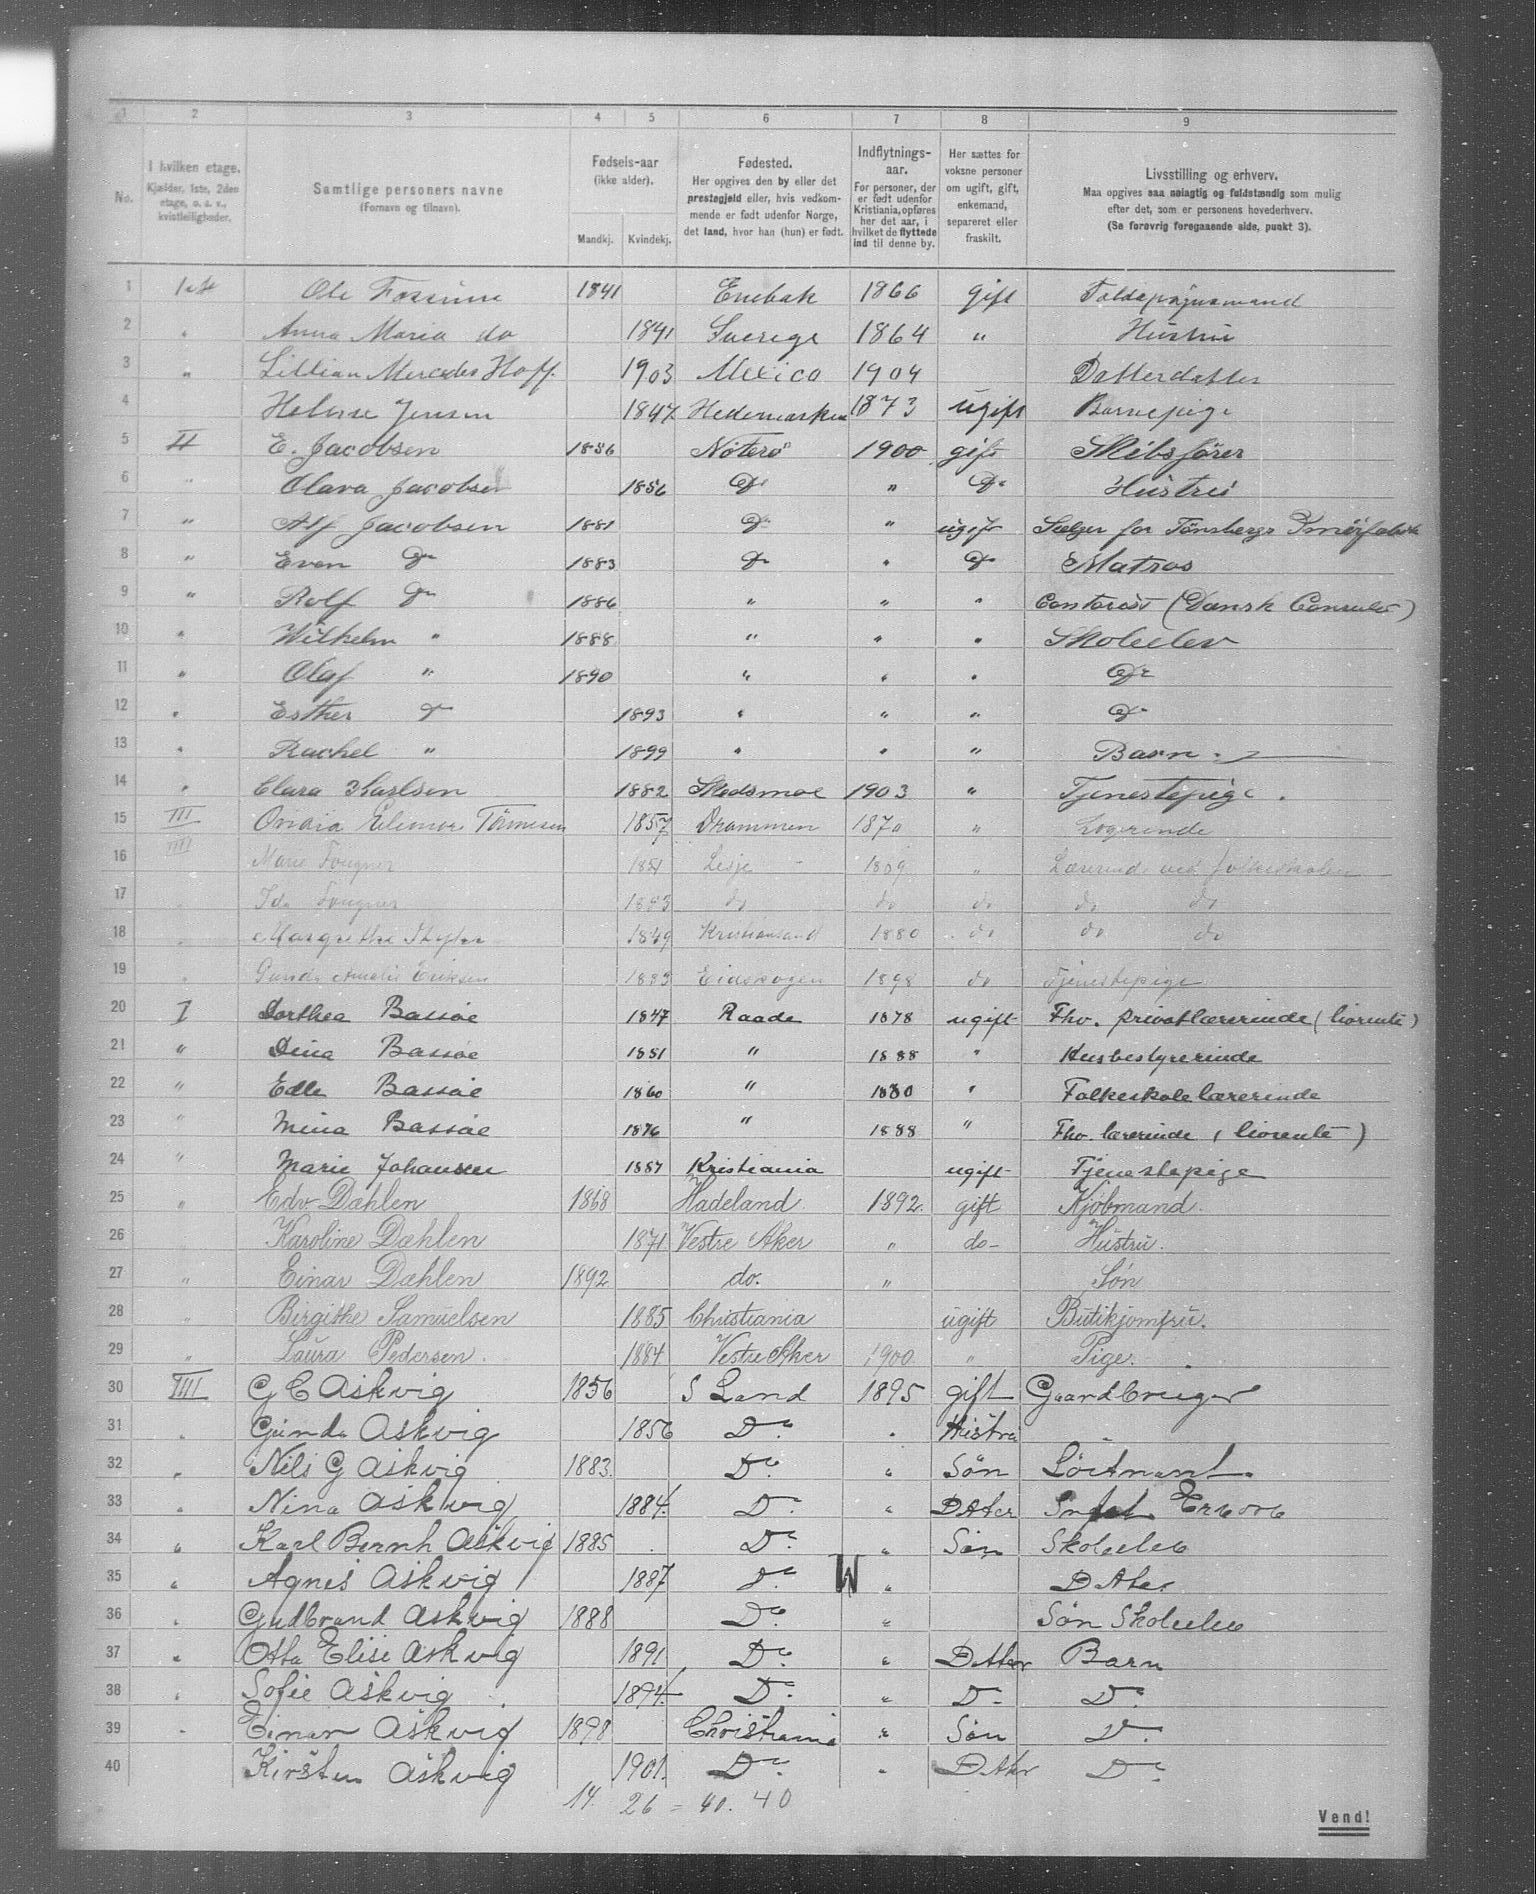 1 2 3 4 5 6 7 8 9
No.
I hvilken etage.
Kjælder, 1ste, 2den
etage, o. s. v.,
kvistleiligheder.
Samtlige personers navne
(Fornavn og tilnavn).
Fødsels-aar
(ikke alder).
Mandkj. Kvindekj.
Fødested.
Her opgives den by eller det
prestegjeld eller, hvis vedkom-
mende er født udenfor Norge,
det land, hvor han (hun) er født.
Indflytnings-
aar.
For personer, der
er født udenfor
Kristiania, opføres
her det aar, i
hvilket de flyttede
ind til denne by.
Her sættes for
voksne personer
om ugift, gift,
enkemand,
separeret eller
fraskilt.
Livsstilling og erhverv.
Maa opgives saa nøiagtig og fuldstændig som mulig
efter det, som er personens hovederhverv.
(Se forøvrig foregaaende side, punkt 3).
1 1st Ole Fossum 1841 Enebak 1866 gift
2 " Anna Maria do 1841 Sverige 1864 " Hustru
3 " Lillian Mercedes Hoff. 1903 Mexico 1904 Datterdatter
4 Jensen 1847 Hedemarken 1873 ugift Barnepige
5 II E. Jacobsen 1856 Nøterø 1900 gift Skibsfører
6 " Clara Jacobsen 1856 Do " Do Hustru
7 " Alf Jacobsen 1881 Do " ugift Sælger for Tønsbergs Smørfabrik
8 " Even Do 1883 Do " Do Matros
9 " Rolf Do 1886 " " " Contorist (Dansk Consulat)
10 " Wilhelm " 1888 " " " Skoleelev
11 " Olaf " 1890 " " " Do
12 " Esther Do 1893 " " " Do
13 " Rachel " 1899 " " " Barn.
14 " Clara Karlsen 1882 Skedsmoe 1903 " Tjenestepige.
15 III Elinor Tønnesen 1857 Drammen 1870 "
16 IIII Marie Fougner 1851 Lesje "  Lærerind. ved folkeskolen
17 " Ida Fougner do do do do do
18 " Margrethe 1849 Kristiansand 1880 do do do
19 " Gunda Amalie Eriksen 1883 Eidskogen 1898 do Tjenestepige
20 I Dorthea Bassøe 1847 Raade 1878 ugift Fhv. privatlærerinde (livrente)
21 " Dina Bassøe 1851 " 1888 " Husbestyrerinde
22 " Edle Bassøe 1860 " 1880 " Folkeskolelærerinde
23 " Mina Bassøe 1876 " 1888 " Fhv. lærerinde (livrente)
24 " Marie Johansen 1887 Kristiania ugift Tjenestepige
25 " Edv. Dæhlen 1868 Hadeland 1892. gift Kjøbmand.
26 Karoline Dæhlen 1871 Vestre Aker " do- Hustru.
27 " Einar Dæhlen 1892 do. " Søn
28 " Birgithe Samuelsen 1885 Christiania ugift Butikjomfru.
29 " Laura Pedersen. 1884 Vestre Aker 1900 " Pige.
30 III G C Askvig 1856 S Land 1895 gift Gaardbruger
31 " Gunda Askvig 1856 Do " Hustru "
32 " Nils G Askvig 1883. Do " Søn Løitnant.
33 " Nina Askvig 1884. Do " Datter
34 " Karl Bernh Askvig 1885 Do " Søn Skoleelev
35 " Agnes Askvig 1887 Do W " Datter
36 " Gudbrand Askvig 1888 Do " Søn Skoleelev
37 " Otta Elise Askvig 1891 Do " Datter Barn
38 " Sofie Askvig 1894. Do " Do Do
39 " Einar Askvig 1898 Christiania " Søn Do
40 Kirsten Askvig 1901. Do " Datter Do
14. 26 = 40. 40
Vend!